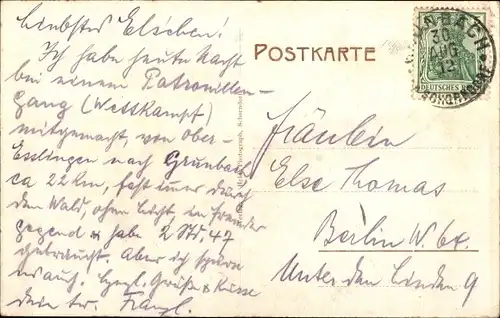 Liebstes Elseben!
Ich habe heute Nacht
bei einem Patrouillen-
gang (Wettkampf)
mitgemacht, von Ober-
Esslingen nach Grunbach
ca 22 Km, fast immer durch
den Wald, ohne Licht, in fremder
Gegend & habe 2 Std, 47
gebraucht. Aber ich spüre
es auch. Herzl. Grüße & Küsse
dein tr. Franzl.
POSTKARTE
Photograph, Schorndorf
GRUNBACH
30
AUG
12
(SCHORNDORF)
DEUTSCHES REICH
Fräulein
Else Thomas
Berlin W. 64.
Unter den Linden 9